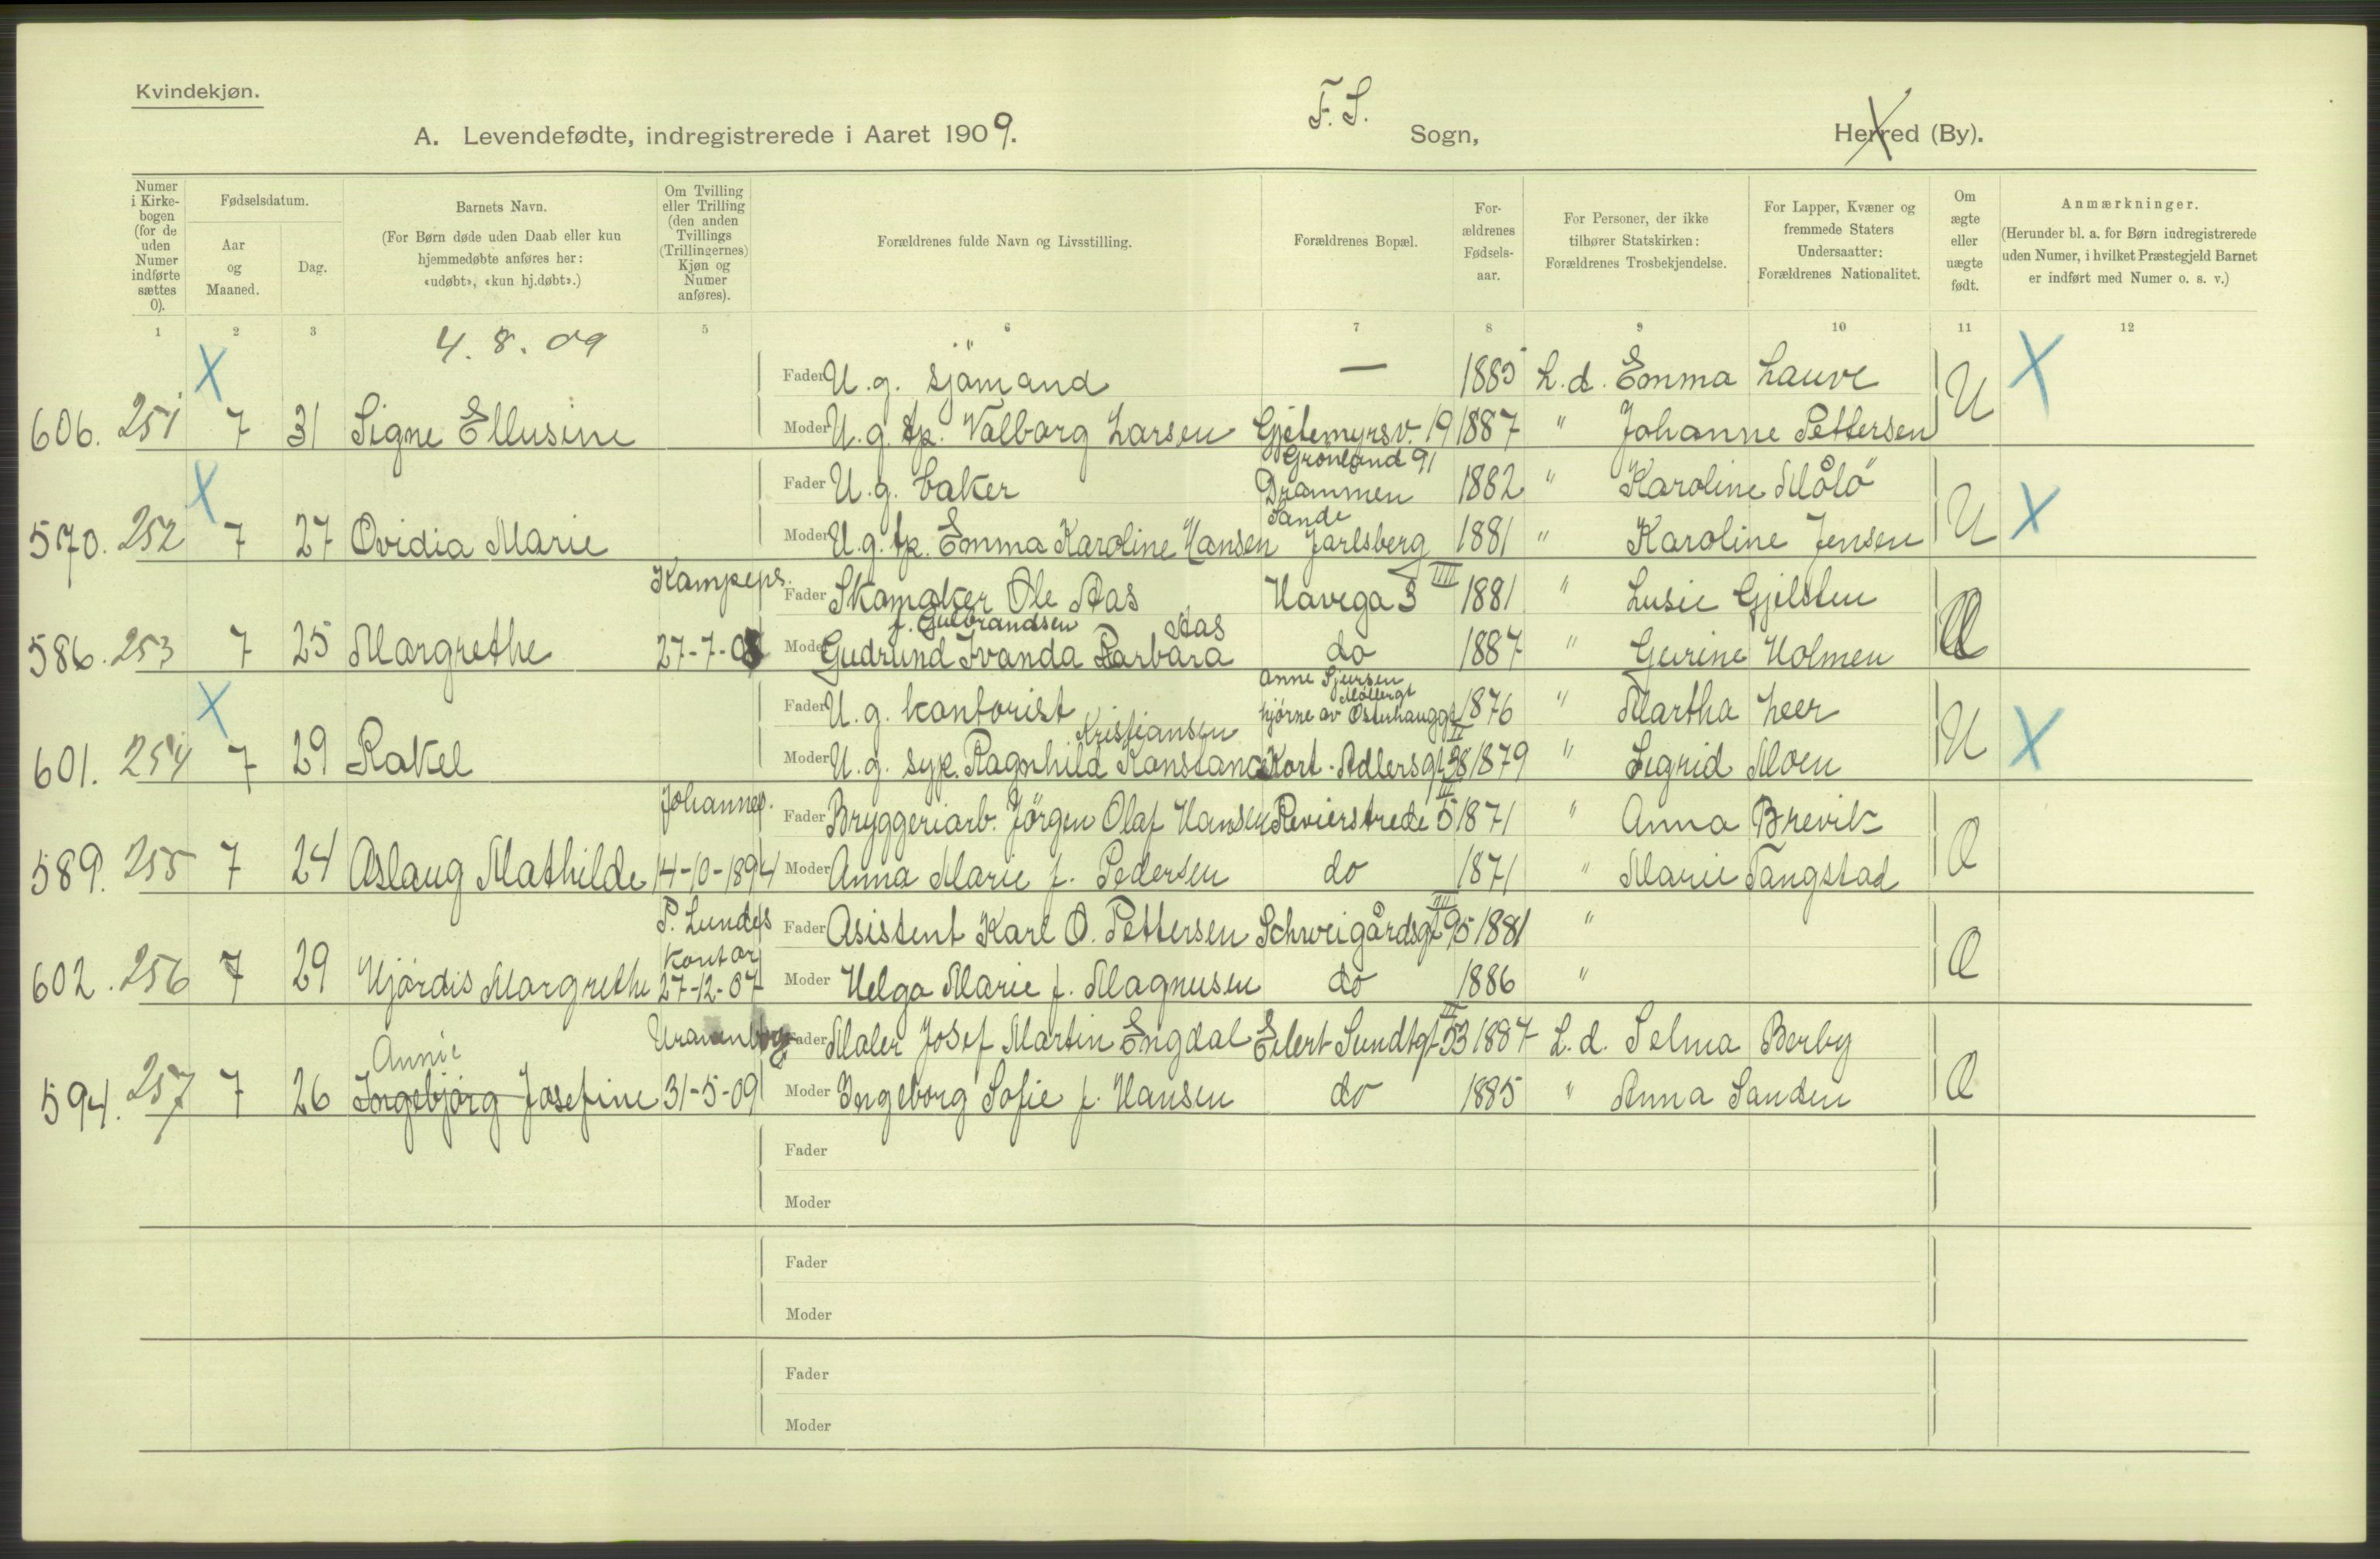 Kvindekjøn.
A. Levendefødte, indregistrerede i Aaret 1909.
F. S. Sogn,
Herred (By).
Numer i Kirkebogen (for de uden Numer indførte sættes 0).
Fødselsdatum.
Aar og Maaned.
Dag.
Barnets Navn.
(For Børn døde uden Daab eller kun hjemmedøbte anføres her: «udøbt», «kun hj.døbt».)
Om Tvilling eller Trilling (den anden Tvillings (Trillingernes) Kjøn og Numer anføres).
Forældrenes fulde Navn og Livsstilling.
Forældrenes Bopæl.
Forældrenes Fødselsaar.
For Personer, der ikke tilhører Statskirken: Forældrenes Trosbekjendelse.
For Lapper, Kvæner og fremmede Staters Undersaatter: Forældrenes Nationalitet.
Om ægte eller uægte født.
Anmærkninger.
(Herunder bl. a. for Børn indregistrerede uden Numer, i hvilket Præstegjeld Barnet er indført med Numer o. s. v.)
1 2 3 5 6 7 8 9 10 11 12
4. 8. 09
X
Fader U. g. sjömand — 1885 L. d. Emma Lauve U X
606. 251 7 31 Signe Ellusine Moder U. g. tp. Valborg Larsen Gjetemyrsv. 19 1887 " Johanne Pettersen
X
Grönland 91
Fader U. g. baker Drammen 1882 " Karoline Målö U X
Sande
570. 252 7 27 Ovidia Marie Moder U. g. tp. Emma Karoline Hansen Jarlsberg 1881 " Karoline Jensen
Kampeps. Fader Skomaker Ole Aas Havega 3 IIII 1881 " Lusie Gjelsten Æ
f. Gulbrandsen Aas
586. 253 7 25 Margrethe 27-7-08 Moder Gudrund Ivanda Barbara do 1887 " Gurine Holmen
X
Anne Sjursen
Möllergt
Fader U. g. kontorist hjörne av Osterhausgt 1876 " Martha Leer U X
Kristiansen II
601. 254 7 29 Rakel Moder U. g. syp. Ragnhild Konstance Kort. Adlersgt 38 1879 " Sigrid Moen
Johannes. III
Fader Bryggeriarb. Jörgen Olaf Hansen Revierstrede 5 1871 " Anna Brevik Æ
589. 255 7 24 Aslaug Mathilde 14-10-1894 Moder Anna Marie f. Pedersen do 1871 " Marie Tangstad
P. Lundes Fader Asistent Karl O. Pettersen Schweigårdsgt 95 IIII 1881 " Æ
kontor
602. 256 7 29 Hjördis Margrethe 27-12-07 Moder Helga Marie f. Magnusen do 1886 "
Uranienborg Fader Maler Josef Martin Engdal Eilert Sundtgt 53 III 1887 L. d. Selma Berby Æ
Annie
594. 257 7 26 Ingebjörg Josefine 31-5-09 Moder Ingeborg Sofie f. Hansen do 1885 " Anna Sanden
Fader
Moder
Fader
Moder
Fader
Moder